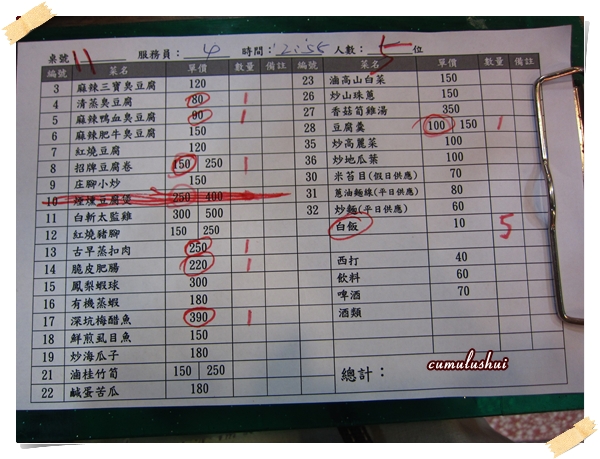 桌號 11 服務員: 4 時間: 12:55 人數: 5 位
編號 菜名 單價 數量 備註
3 麻辣三寶臭豆腐 120
4 清蒸臭豆腐 80 1
5 麻辣鴨血臭豆腐 90 1
6 麻辣肥牛臭豆腐 150
7 紅燒豆腐 120
8 招牌豆腐卷 150 250 1
9 庄腳小炒 150
10 豆腐煲 250 400
11 白斬太監雞 300 500
12 紅燒豬腳 150 250
13 古早蒸扣肉 250 1
14 脆皮肥腸 220 1
15 鳳梨蝦球 300
16 有機蒸蝦 180
17 深坑梅醋魚 390 1
18 鮮煎虱目魚 150
19 炒海瓜子 180
21 滷桂竹筍 150 250
22 鹹蛋苦瓜 180
編號 菜名 單價 數量 備註
23 滷高山白菜 150
26 炒山珠蔥 150
27 香菇筍雞湯 350
28 豆腐羹 100 150 1
35 炒高麗菜 100
36 炒地瓜葉 100
30 米苔目(假日供應) 70
31 蔥油麵線(平日供應) 80
32 炒麵(平日供應) 60
白飯 10 5
西打 40
飲料 60
啤酒 70
酒類
總計:
cumulushui